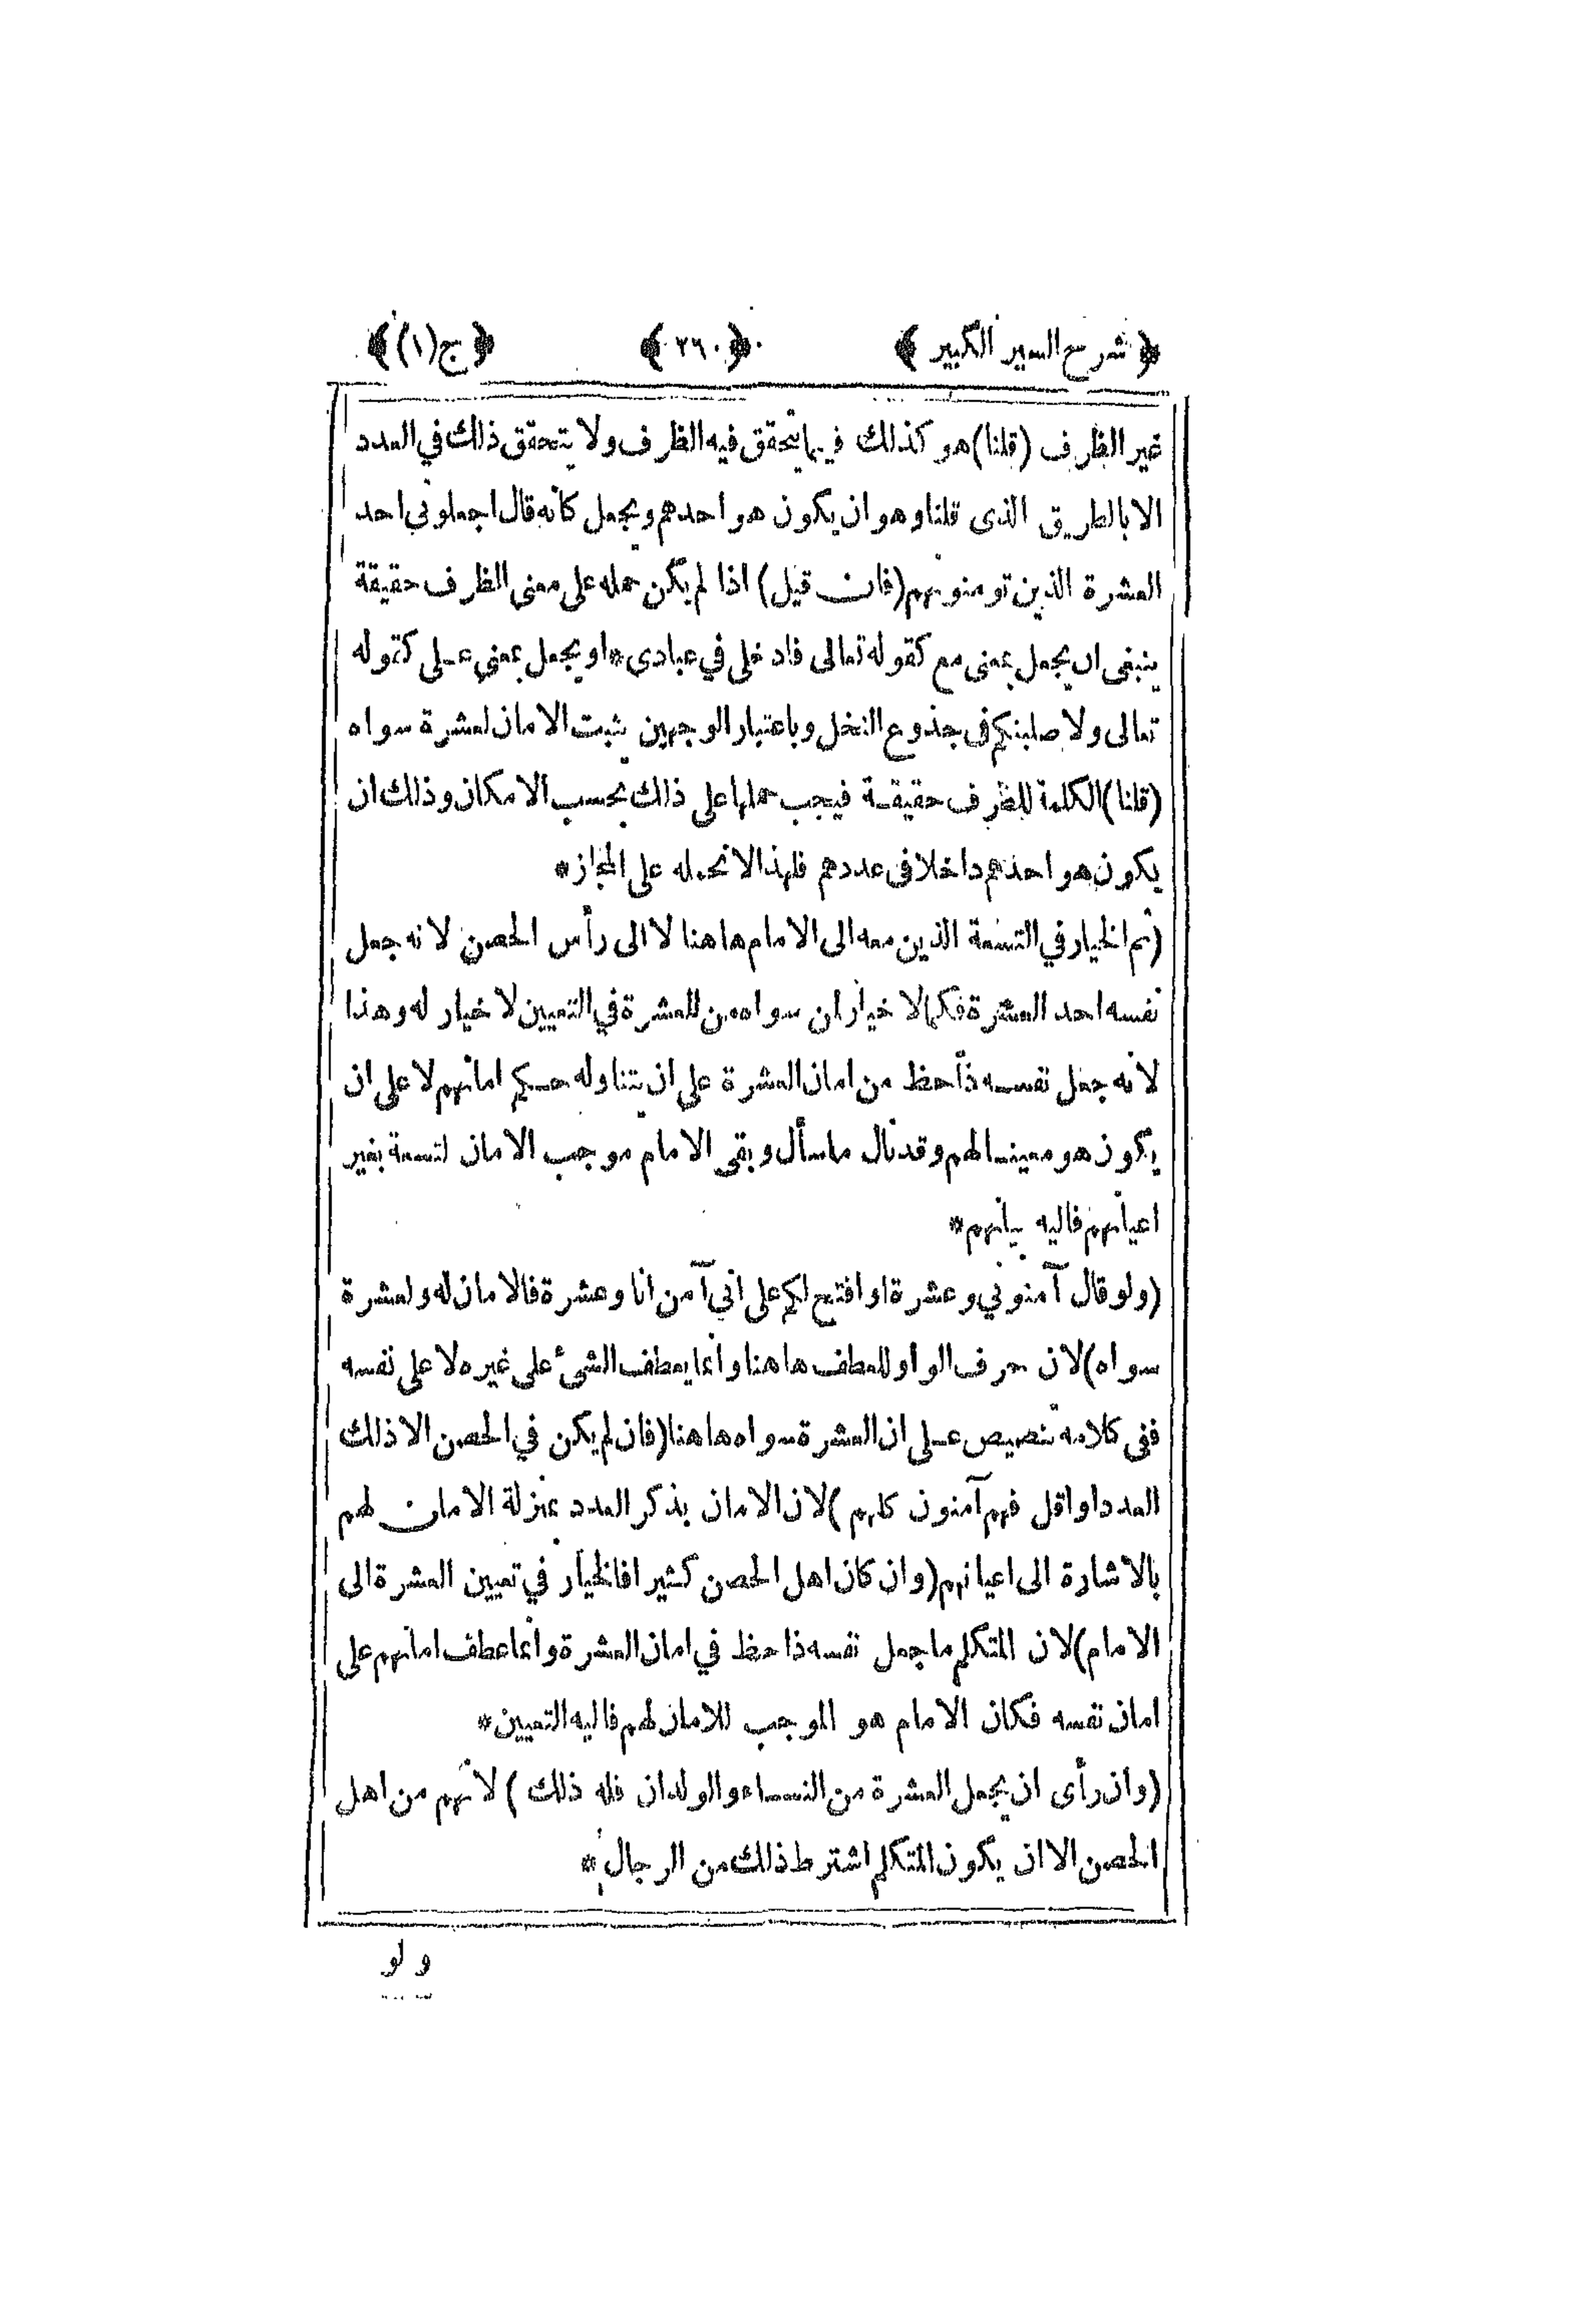 ﴿ شرح السير الكبير ﴾ ﴿٢٦٠﴾ ﴿ج(١)﴾
غير الظرف (قلنا) هو كذلك فيما يتحقق فيه الظرف ولا يتحقق ذلك في العدد
الا بالطريق الذى قلنا وهو ان يكون هو احدهم ويجعل كأنه قال اجعلوني احد
العشرة الذين تومنونهم (فان قيل) اذا لم يكن حمله على معنى الظرف حقيقة
ينبغى ان يجعل بمعنى مع كقوله تعالى فادخلى في عبادى * او يجعل بمعنى على كقوله
تعالى ولاصلبنكم فى جذوع النخل وباعتبار الوجهين يثبت الامان لعشرة سواه
(قلنا) الكلمة للظرف حقيقة فيجب حملها على ذلك بحسب الامكان وذلك ان
يكون هو احدهم داخلا فى عددهم فلهذا لا نحمله على المجاز *
(ثم الخيار في التسعة الذين معه الى الامام هاهنا لا الى رأس الحصن لانه جعل
نفسه احد العشرة فكما لا خيار لمن سواه من العشرة في التعيين لا خيار له وهذا
لانه جعل نفسه ذا حظ من امان العشرة على ان يتناوله حكم امانهم لا على ان
يكون هو معينا لهم وقد نال ما سأل وبقى الامام موجب الامان لتسعة بغير
اعيانهم فاليه بيانهم *
(ولو قال آمنوني وعشرة او افتح لكم على اني آمن انا وعشرة فالامان له ولعشرة
سواه) لان حرف الواو للعطف هاهنا وانما يعطف الشئ على غيره لا على نفسه
ففى كلامه تنصيص على ان العشرة سواه هاهنا (فان لم يكن في الحصن الا ذلك
العدد او اقل فهم آمنون كلهم) لان الامان بذكر العدد بمنزلة الامان لهم
بالاشارة الى اعيانهم (وان كان اهل الحصن كثيرا فالخيار في تعيين العشرة الى
الامام) لان المتكلم ما جعل نفسه ذا حظ في امان العشرة وانما عطف امانهم على
امان نفسه فكان الامام هو الموجب للامان لهم فاليه التعيين *
(وان رأى ان يجعل العشرة من النساء والولدان فله ذلك) لانهم من اهل
الحصن الا ان يكون المتكلم اشترط ذلك من الرجال *
ولو